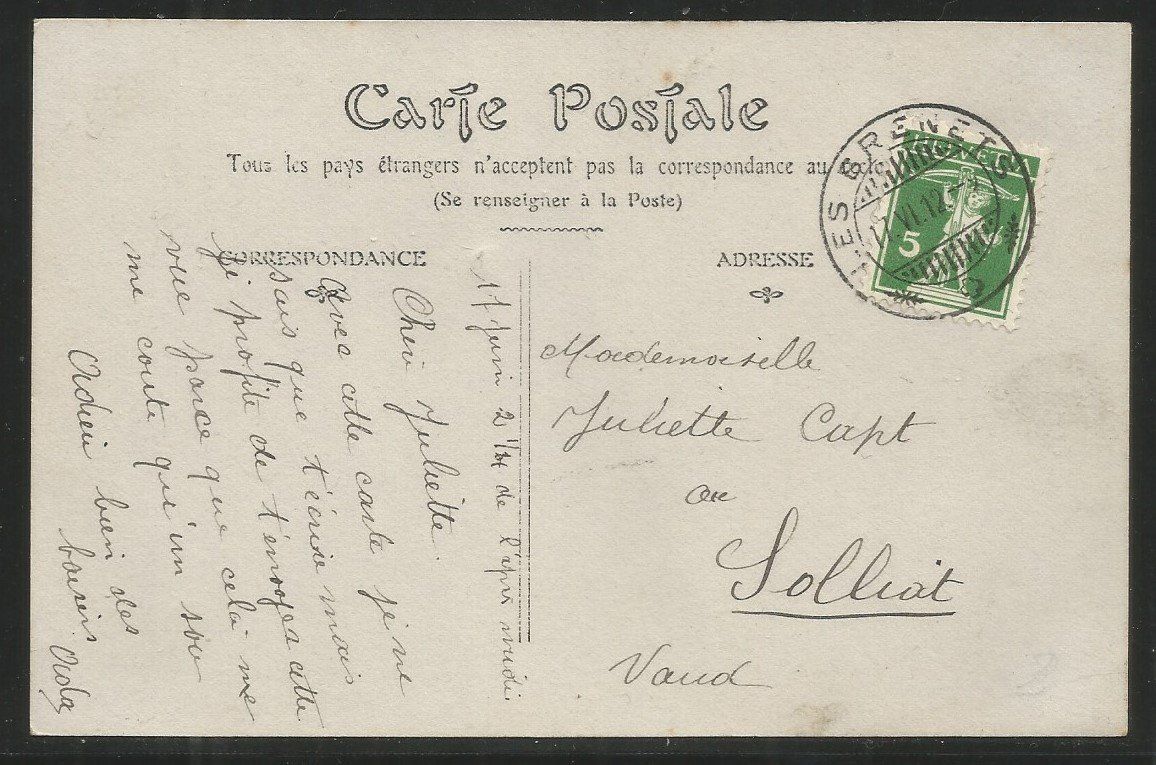 Carte Postale
Tous les pays étrangers n'acceptent pas la correspondance au recto
(Se renseigner à la Poste)
CORRESPONDANCE
ADRESSE
LES BRENETS
17.VI.12
HELVETIA
5
17 juin 2 1/4 de l'aprè midi
Cher Juliette.
Avec cette carte je ne
sais que t'écrire mais
je profite de cette
vue parce que cela me
me coute qu'un sou
Adieu bien des
baisers Oida
Mademoiselle
Juliette Capt
au
Solliat
Vaud